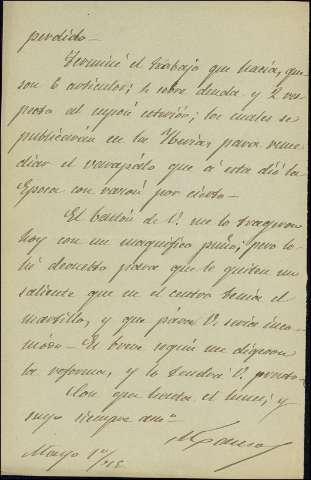 perdido –
Terminé el trabajo que hacía, que
son 6 artículos; 4 sobre deuda y 2 res-
pecto al cupón exterior; los cuales se
publicarán en la Iberia, para reme-
diar el varapalo que a esta dió la
Epoca con razón por cierto –
El bastón de V. me lo trageron
hoy con un magnífico puño; pero lo
hé devuelto para que le quiten un
saliente que en el centro tenía el
martillo, y que para V. sería incó-
modo – Es breve según me dijeron
la reforma, y lo tendrá V. pronto.
Con que hasta el lunes; y
suyo siempre am.º
Mayo 1º/